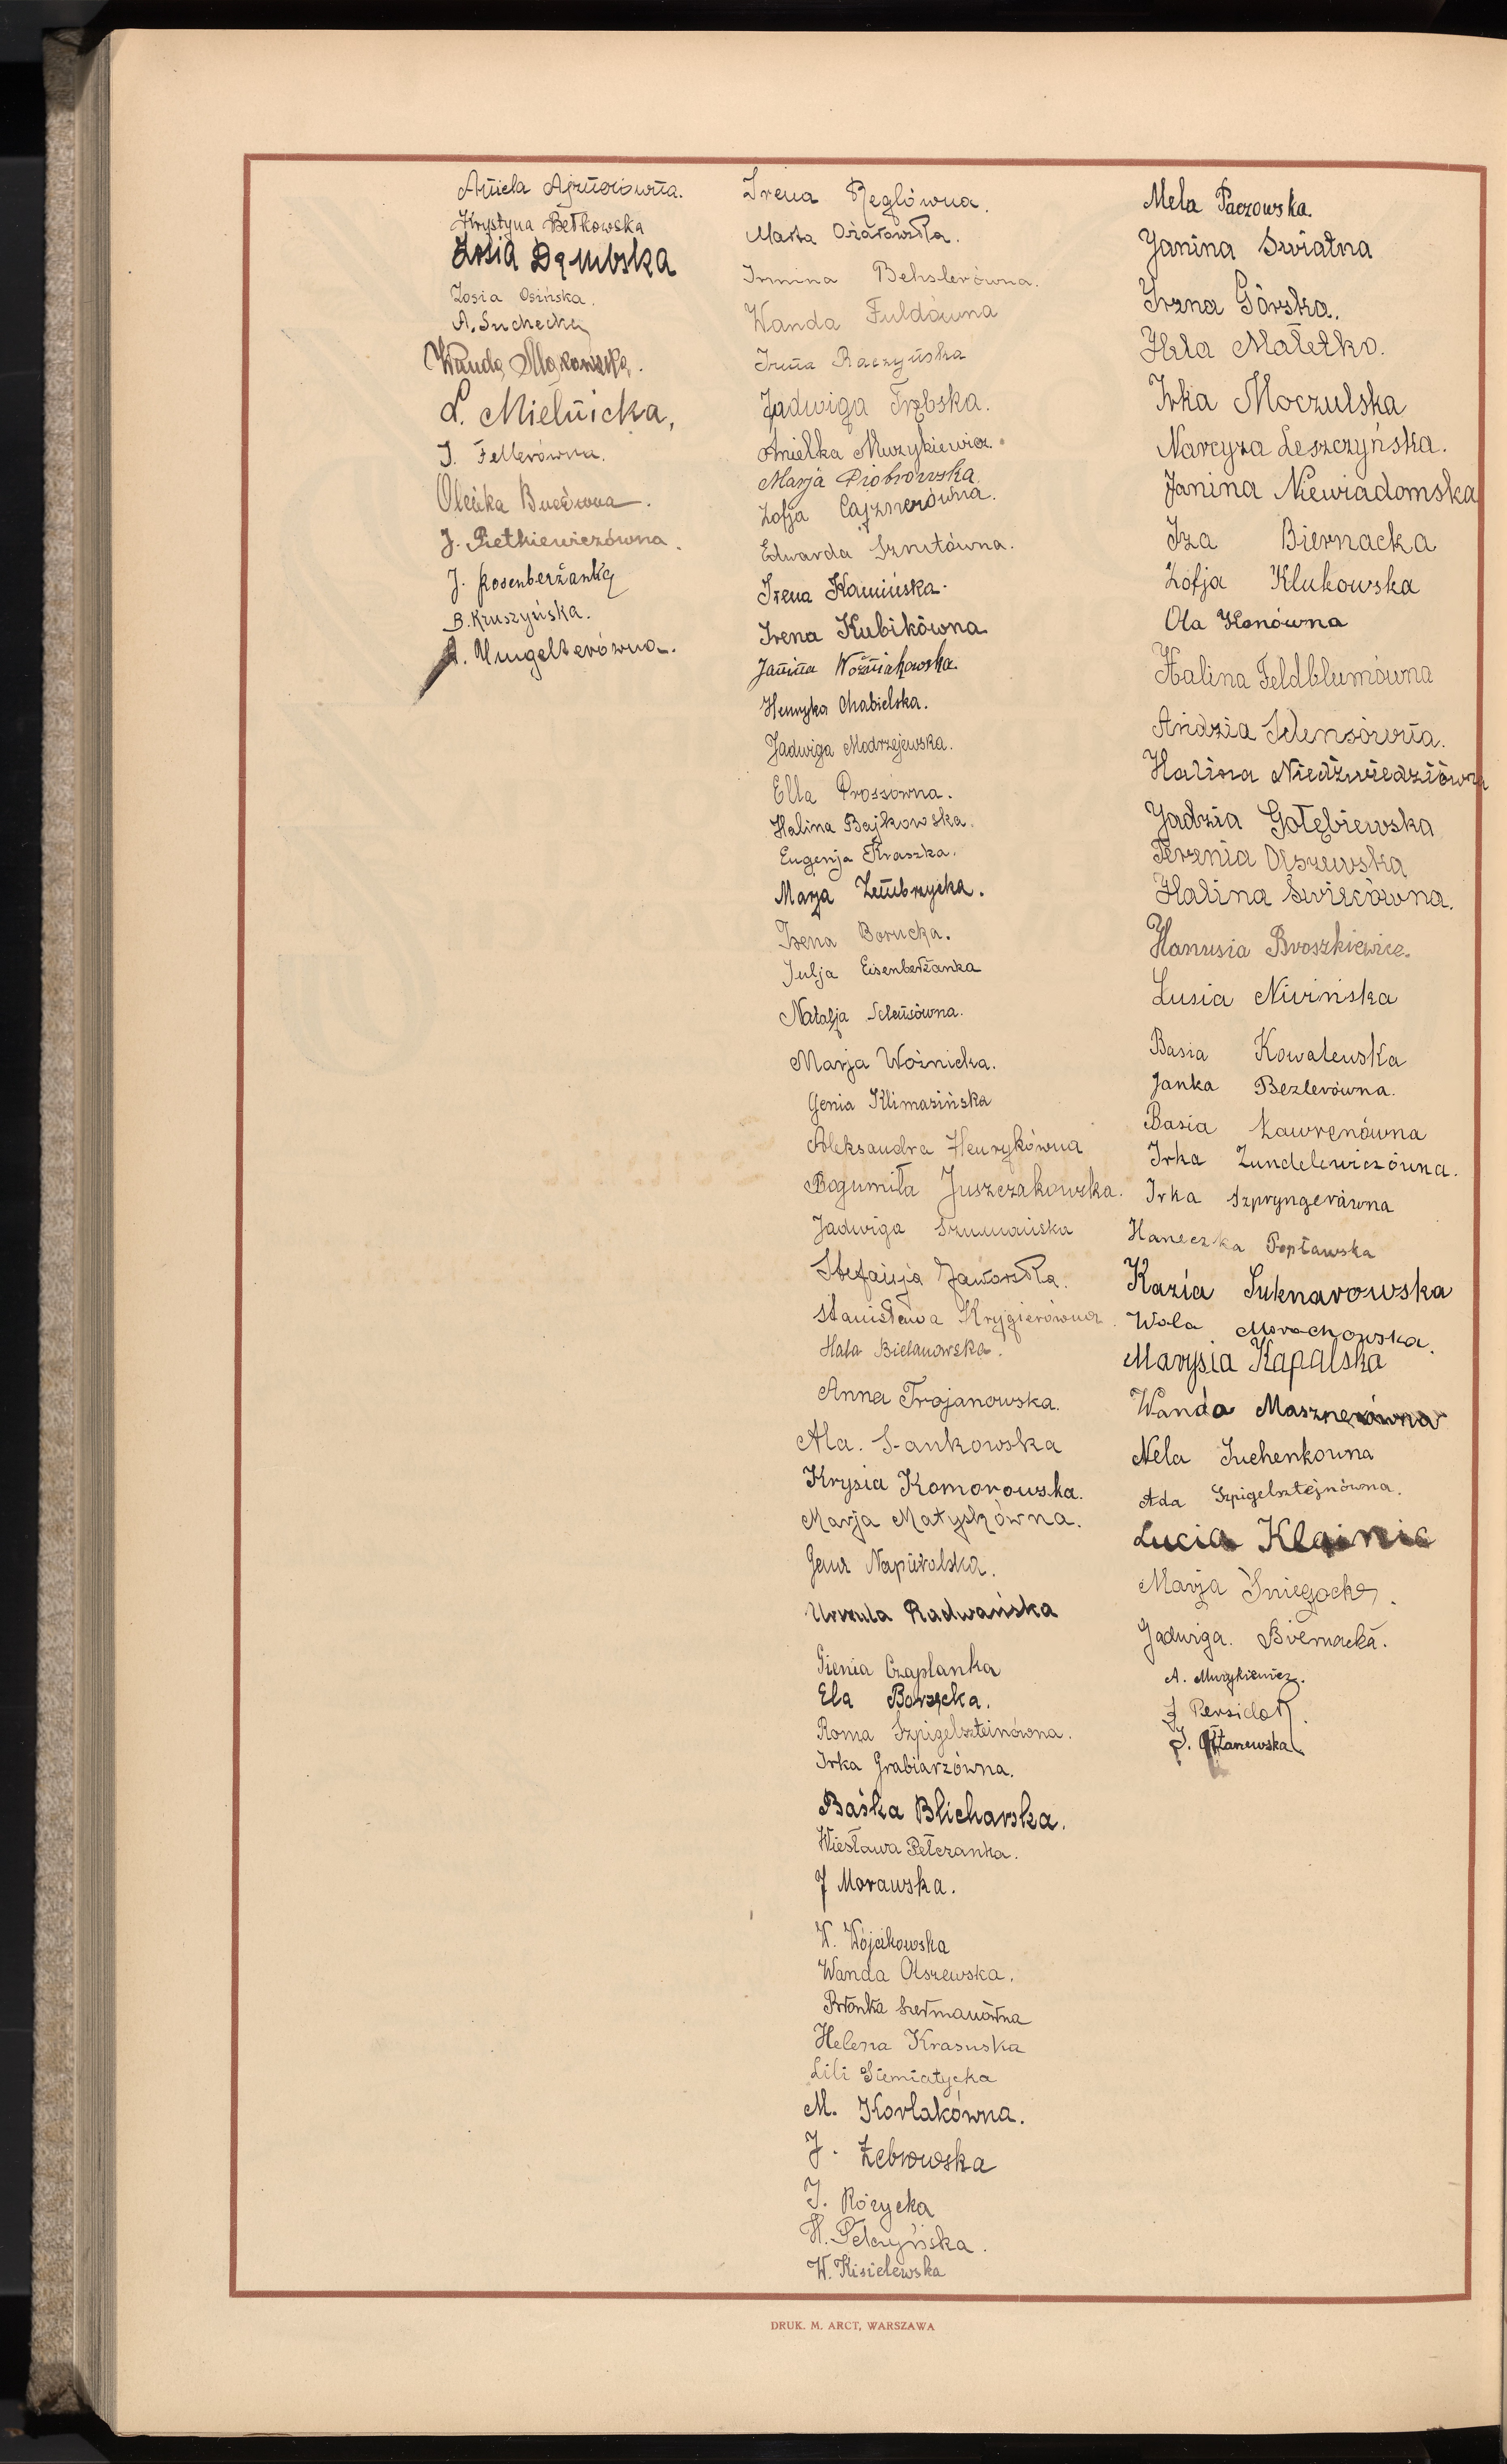 Aniela Ajznerówna.
Krystyna Bełkowska
Zosia Dąmbska
Zosia Osińska.
A. Suchecka
Wanda Makowska.
L. Mielnicka,
J. Fellerówna.
Oleńka
J. Pietkiewiczówna.
J. Rosenberżanka
B. Kruszyńska.
A. Ungelterówna.
Irena Reglówna.
Marta Ożarowska.
Irmina Bekslerówna.
Wanda Fuldówna
Irena Raczyńska
Jadwiga Trębska.
Anielka Muzykiewicz.
Marja Piotrowska
Zofja Cajznerówna.
Edwarda Sznutówna.
Irena Kamińska.
Irena Kubikówna
Janina Woźniakowska.
Henryka Chabielska.
Jadwiga Modrzejewska.
Ella Prossówna.
Halina Bajkowska.
Eugenja Kraszka.
Marja Zembrzycka.
Irena Borucka.
Julja Eisenberżanka
Natalja Selensówna.
Marja Woźnicka.
Genia Klimasińska
Aleksandra Henrykówna
Bogumiła Juszczakowska.
Jadwiga Szumańska
Stefanja Jaworska.
Stanisława Krygierówna.
Hala Bielanowska.
Anna Trojanowska.
Ala. S-ankowska
Krysia Komorowska.
Marja Matyskówna.
Napieralska.
Urszula Radwańska
Gienia Czaplanka
Ela Borzęcka.
Roma Szpigelszteinówna.
Irka Grabiarzówna.
Baśka Blicharska.
Wiesława Pełczanka.
J Morawska.
W. Wójcikowska
Wanda Olszewska.
Bronka Szermanówna
Helena Krasuska
Lili Siemiatycka
M. Korlakówna.
J. Żebrowska
J. Różycka
H. Pełczyńska.
W. Kisielewska
Mela Paczowska.
Janina Swiatna
Irena Górska.
Hela Małetko.
Irka Moczulska
Narcyza Leszczyńska.
Janina Niewiadomska
Iza Biernacka
Zofja Klukowska
Ola Konówna
Halina Feldblumówna
Andzia Selensówna.
Halina Niedźwiedziówna
Jadzia Gołębiewska
Terenia Olszewska
Halina Święcówna.
Hanusia Broszkiewicz.
Lusia Niwińska
Basia Kowalewska
Janka Bezlerówna.
Basia Ławrenówna
Irka Zundelewiczówna.
Irka Szpryngerówna
Haneczka Popławska
Kazia Suknarowska
Wola Morachowska.
Marysia Kapalska
Wanda Masznerówna
Nela Juchenkowna
Ada Szpigelsztejnówna.
Lucia Klainic
Marja Śniegocka.
Jadwiga. Biernacka.
A. Muzykiewicz.
J Persidok.
J.
DRUK. M. ARCT, WARSZAWA